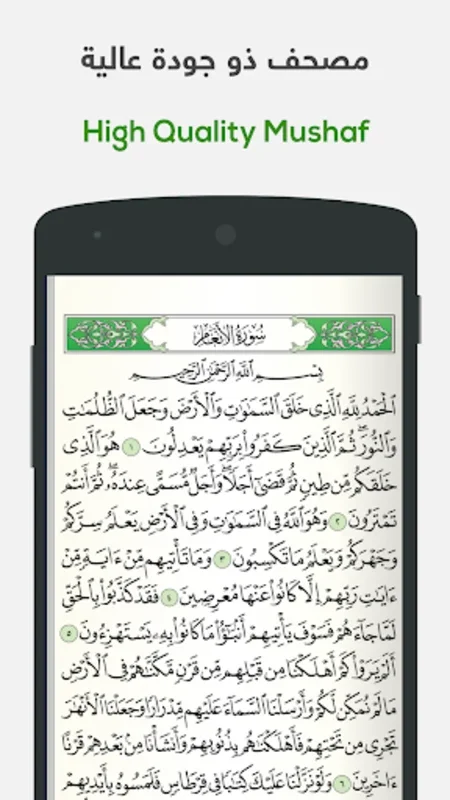 مصحف ذو جودة عالية
High Quality Mushaf
سُورَةُ الأَنْعَامِ
بِسْمِ ٱللَّهِ ٱلرَّحْمَٰنِ ٱلرَّحِيمِ
ٱلْحَمْدُ لِلَّهِ ٱلَّذِى خَلَقَ ٱلسَّمَٰوَٰتِ وَٱلْأَرْضَ وَجَعَلَ ٱلظُّلُمَٰتِ
وَٱلنُّورَ ۖ ثُمَّ ٱلَّذِينَ كَفَرُوا۟ بِرَبِّهِمْ يَعْدِلُونَ ١ هُوَ ٱلَّذِى
خَلَقَكُم مِّن طِينٍ ثُمَّ قَضَىٰٓ أَجَلًا ۖ وَأَجَلٌ مُّسَمًّى عِندَهُۥ ۖ ثُمَّ أَنتُمْ
تَمْتَرُونَ ٢ وَهُوَ ٱللَّهُ فِى ٱلسَّمَٰوَٰتِ وَفِى ٱلْأَرْضِ ۖ يَعْلَمُ سِرَّكُمْ
وَجَهْرَكُمْ وَيَعْلَمُ مَا تَكْسِبُونَ ٣ وَمَا تَأْتِيهِم مِّنْ ءَايَةٍ مِّنْ
ءَايَٰتِ رَبِّهِمْ إِلَّا كَانُوا۟ عَنْهَا مُعْرِضِينَ ٤ فَقَدْ كَذَّبُوا۟ بِٱلْحَقِّ
لَمَّا جَآءَهُمْ ۖ فَسَوْفَ يَأْتِيهِمْ أَنۢبَٰٓؤُا۟ مَا كَانُوا۟ بِهِۦ يَسْتَهْزِءُونَ ٥
أَلَمْ يَرَوْا۟ كَمْ أَهْلَكْنَا مِن قَبْلِهِم مِّن قَرْنٍ مَّكَّنَّٰهُمْ فِى ٱلْأَرْضِ
مَا لَمْ نُمَكِّن لَّكُمْ وَأَرْسَلْنَا ٱلسَّمَآءَ عَلَيْهِم مِّدْرَارًا وَجَعَلْنَا ٱلْأَنْهَٰرَ
تَجْرِى مِن تَحْتِهِمْ فَأَهْلَكْنَٰهُم بِذُنُوبِهِمْ وَأَنشَأْنَا مِنۢ بَعْدِهِمْ قَرْنًا
ءَاخَرِينَ ٦ وَلَوْ نَزَّلْنَا عَلَيْكَ كِتَٰبًا فِى قِرْطَاسٍ فَلَمَسُوهُ بِأَيْدِيهِمْ